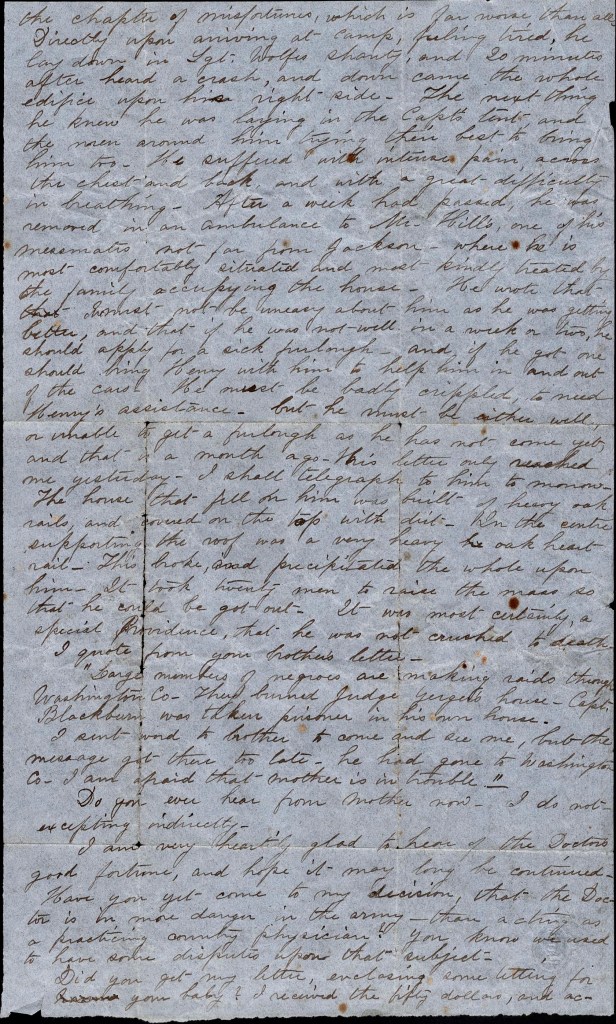 the chapter of misfortunes, which is far worse than all
Directly upon arriving at camp, feeling tired, he
lay down in Sgt. Wolfes shanty, and 20 minutes
after heard a crash, and down came the whole
edifice upon his right side - The next thing
he knew he was laying in the Capt's tent and
the men around him trying their best to bring
him too - He suffered with intense pain across
the chest and back, and with a great difficulty
in breathing - After a week had passed, he was
removed in an ambulance to Mr. Hill's, one of his
messmates not far from Jackson - where he is
most comfortably situated and most kindly treated by
the family occupying the house - He wrote that
must not be uneasy about him as he was getting
better, and that if he was not well in a week or two, he
should apply for a sick furlough - and, if he got one
should bring Henry with him to help him in and out
of the cars - He must be badly crippled, to need
Henry's assistance - but he must be either well,
or unable to get a furlough as he has not come yet,
and that is a month ago - His letter only reached
me yesterday - I shall telegraph to him to morrow -
The house that fell on him was built of heavy oak
rails, and covered on the top with dirt - In the centre
supporting the roof was a very heavy oak heart
rail - This broke, and precipitated the whole upon
him - It took twenty men to raise the mass so
that he could be got out - It was most certainly, a
special Providence, that he was not crushed to death
I quote from your brothers letter -
"Large numbers of negroes are making raids through
Washington Co - They burned Judge Yerger's house - Capt.
Blackburn was taken prisoner in his own house.
I sent word to brother to come and see me, but the
message got there too late - he had gone to Washington
Co - I am afraid that mother is in trouble -"
Do you ever hear from Mother now - I do not -
excepting indirectly -
I am very heartily glad to hear of the Doctors
good fortune, and hope it may long be continued -
Have you yet come to my decision, that the Doc-
tor is in more danger in the army - than acting as
a practicing country physician? You know we used
to have some disputes upon that subject -
Did you get my letter, enclosing some tetting for
your baby? I received the fifty dollars, and ac-